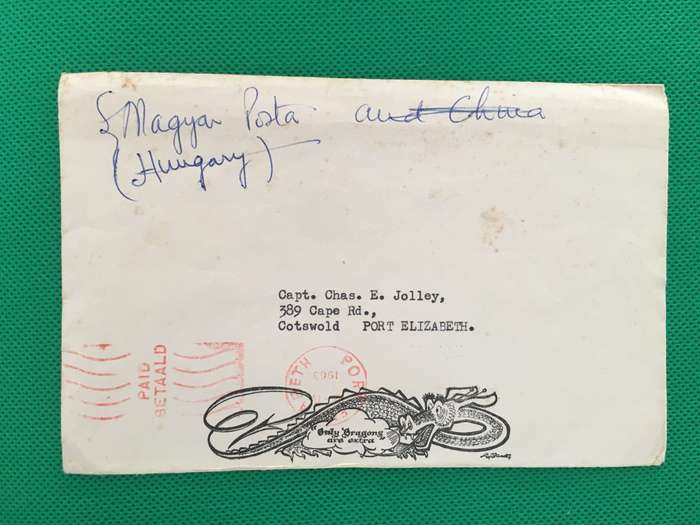 Magyar Posta and China
(Hungary)
Capt. Chas. E. Jolley,
389 Cape Rd.,
Cotswold PORT ELIZABETH.
PAID
BETAALD
1963
"Only Dragons
are extra"